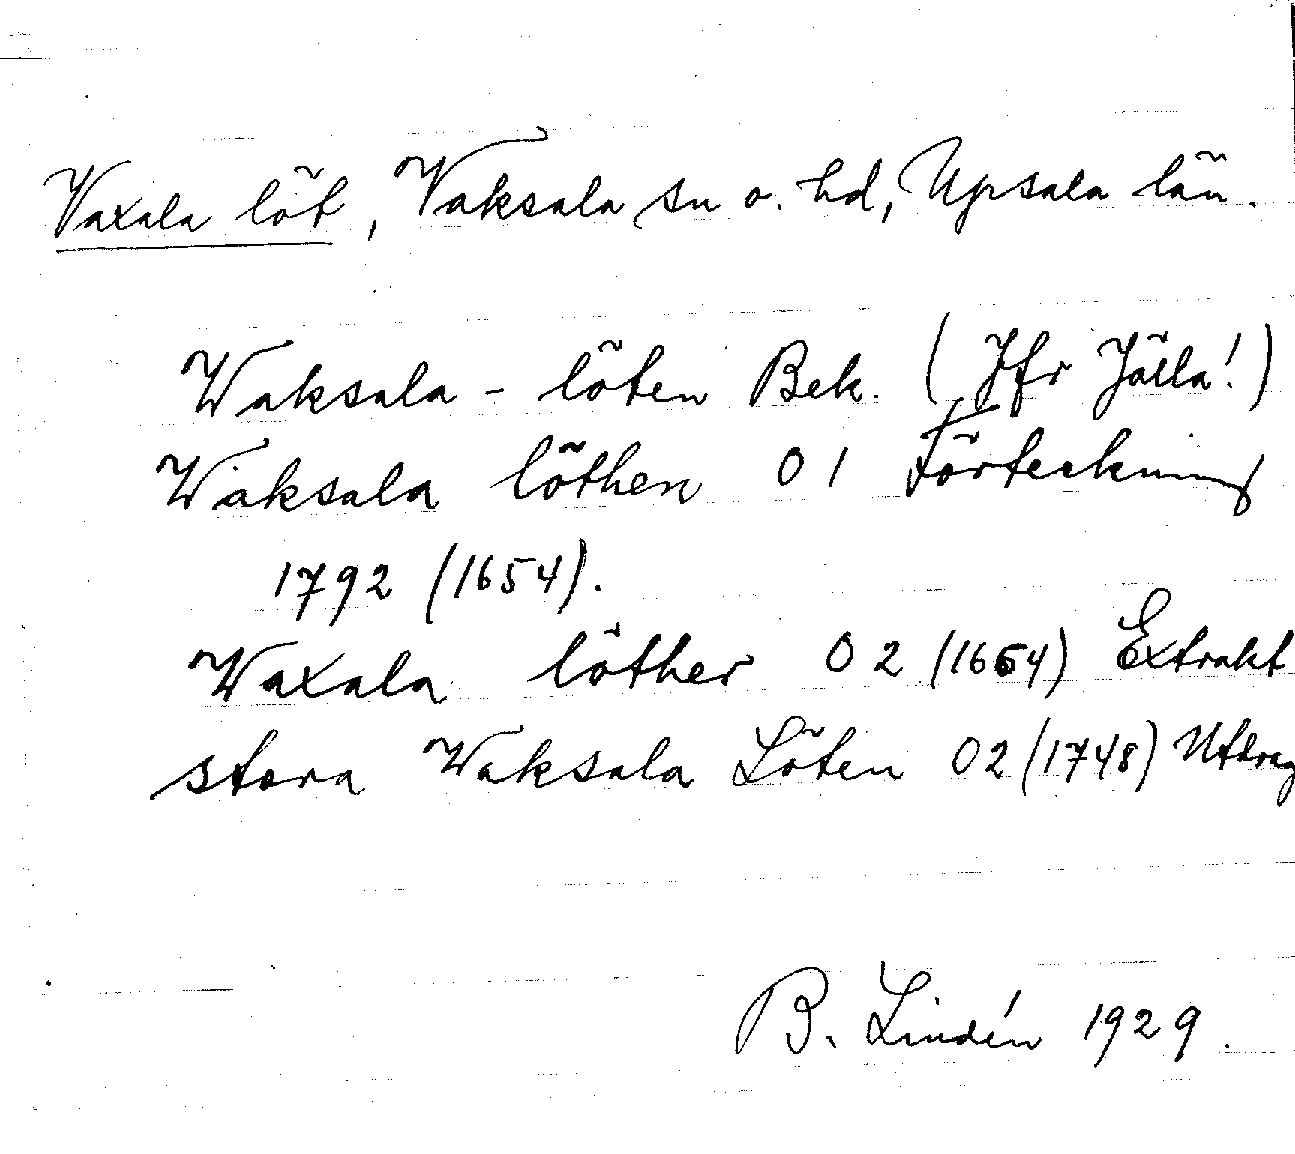 Vaxala löt, Vaksala sn o. hd, Upsala län.
Waksala - löten Bek. (Jfr Jälla!)
Waksala löthen 01 Förteckning
1792 (1654).
Waxala löther 02 (1654) Extrakt
stora Waksala Löten 02 (1748) Utdrag
B. Lindén 1929.